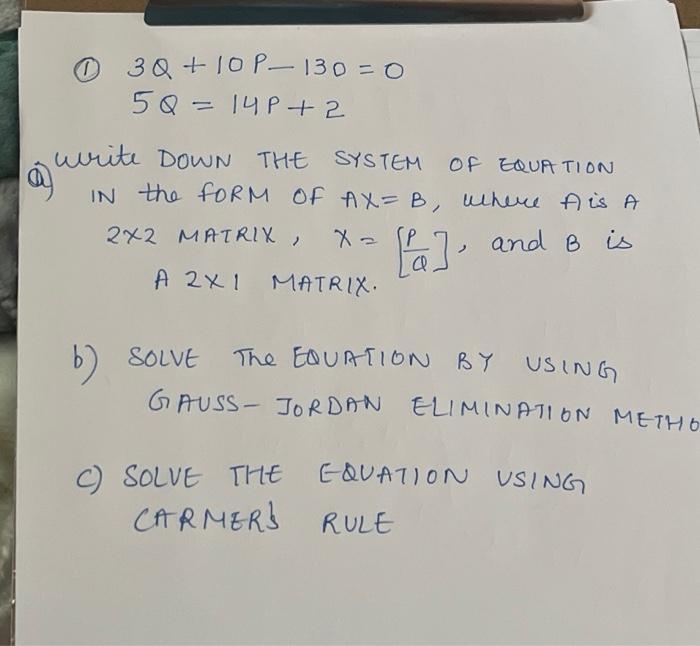 ① 3Q + 10P - 130 = 0
5Q = 14P + 2
a) write DOWN THE SYSTEM OF EQUATION
IN the FORM OF AX = B, where A is A
2×2 MATRIX, X = [P/Q], and B is
A 2×1 MATRIX.
b) SOLVE The EQUATION BY USING
GAUSS - JORDAN ELIMINATION METHO
c) SOLVE THE EQUATION USING
CARMER'S RULE